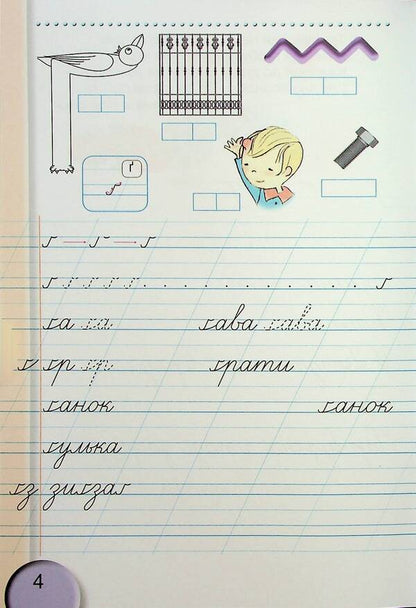 ґ
ґ ґ ґ
ґ ґ ґ ґ ґ ґ
ґа ґа ґава ґава
ґ ґр ґр ґрати
ґанок ґанок
ґулька
ґз зиґзаґ
4